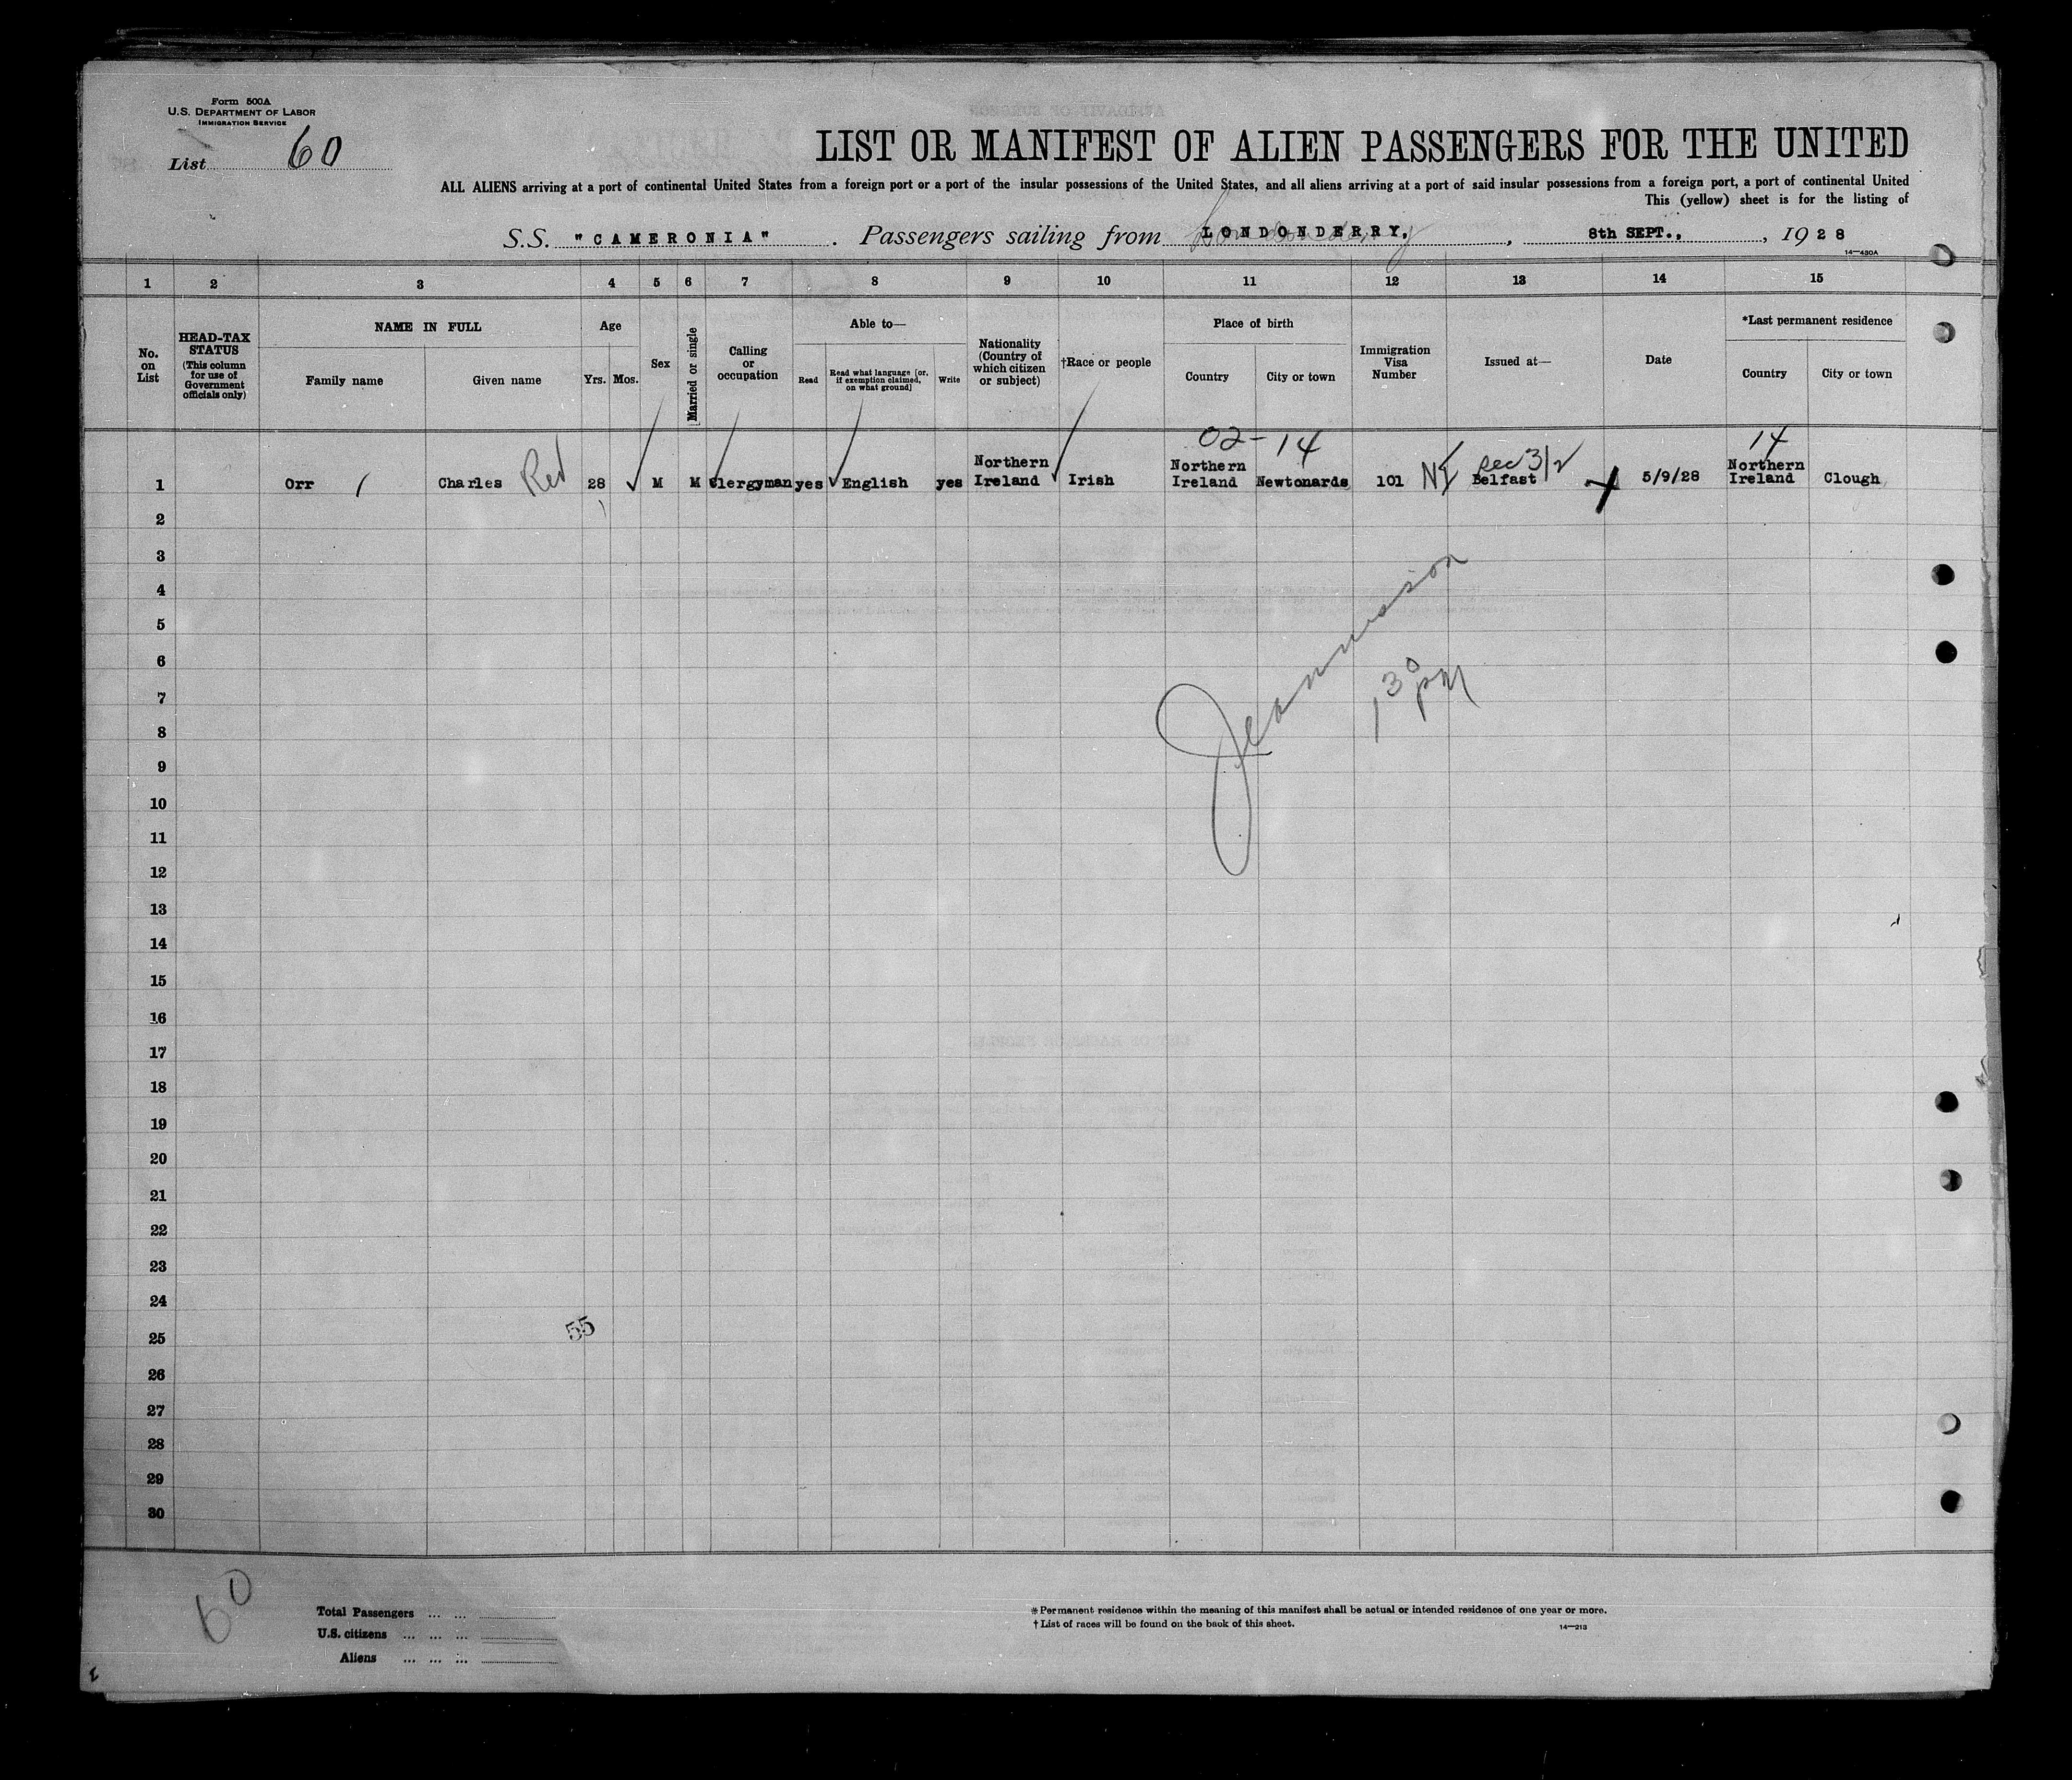 Form 500A
U.S. DEPARTMENT OF LABOR
IMMIGRATION SERVICE
List 60
LIST OR MANIFEST OF ALIEN PASSENGERS FOR THE UNITED
ALL ALIENS arriving at a port of continental United States from a foreign port or a port of the insular possessions of the United States, and all aliens arriving at a port of said insular possessions from a foreign port, a port of continental United
This (yellow) sheet is for the listing of
S.S. "CAMERONIA". Passengers sailing from LONDONDERRY, , 8th SEPT., , 1928
14—430A
1 2 3 4 5 6 7 8 9 10 11 12 13 14 15
No. on List
HEAD-TAX STATUS
(This column for use of Government officials only)
NAME IN FULL
Family name
Given name
Age
Yrs. Mos.
Sex
Married or single
Calling or occupation
Able to—
Read
Read what language [or, if exemption claimed, on what ground]
Write
Nationality (Country of which citizen or subject)
†Race or people
Place of birth
Country
City or town
Immigration Visa Number
Issued at—
Date
*Last permanent residence
Country
City or town
02-14
14
1 Orr Charles Ret 28 M M Clergyman yes English yes Northern Ireland Irish Northern Ireland Newtonards 101 Belfast 5/9/28 Northern Ireland Clough
2
3
4
5
6
7
8
9
10
11
12
13
14
15
16
17
18
19
20
21
22
23
24
25
26
27
28
29
30
1 30 PM
55
60
Total Passengers ... ...
U.S. citizens ... ... ...
Aliens ... ... ...
* Permanent residence within the meaning of this manifest shall be actual or intended residence of one year or more.
† List of races will be found on the back of this sheet.
14—213